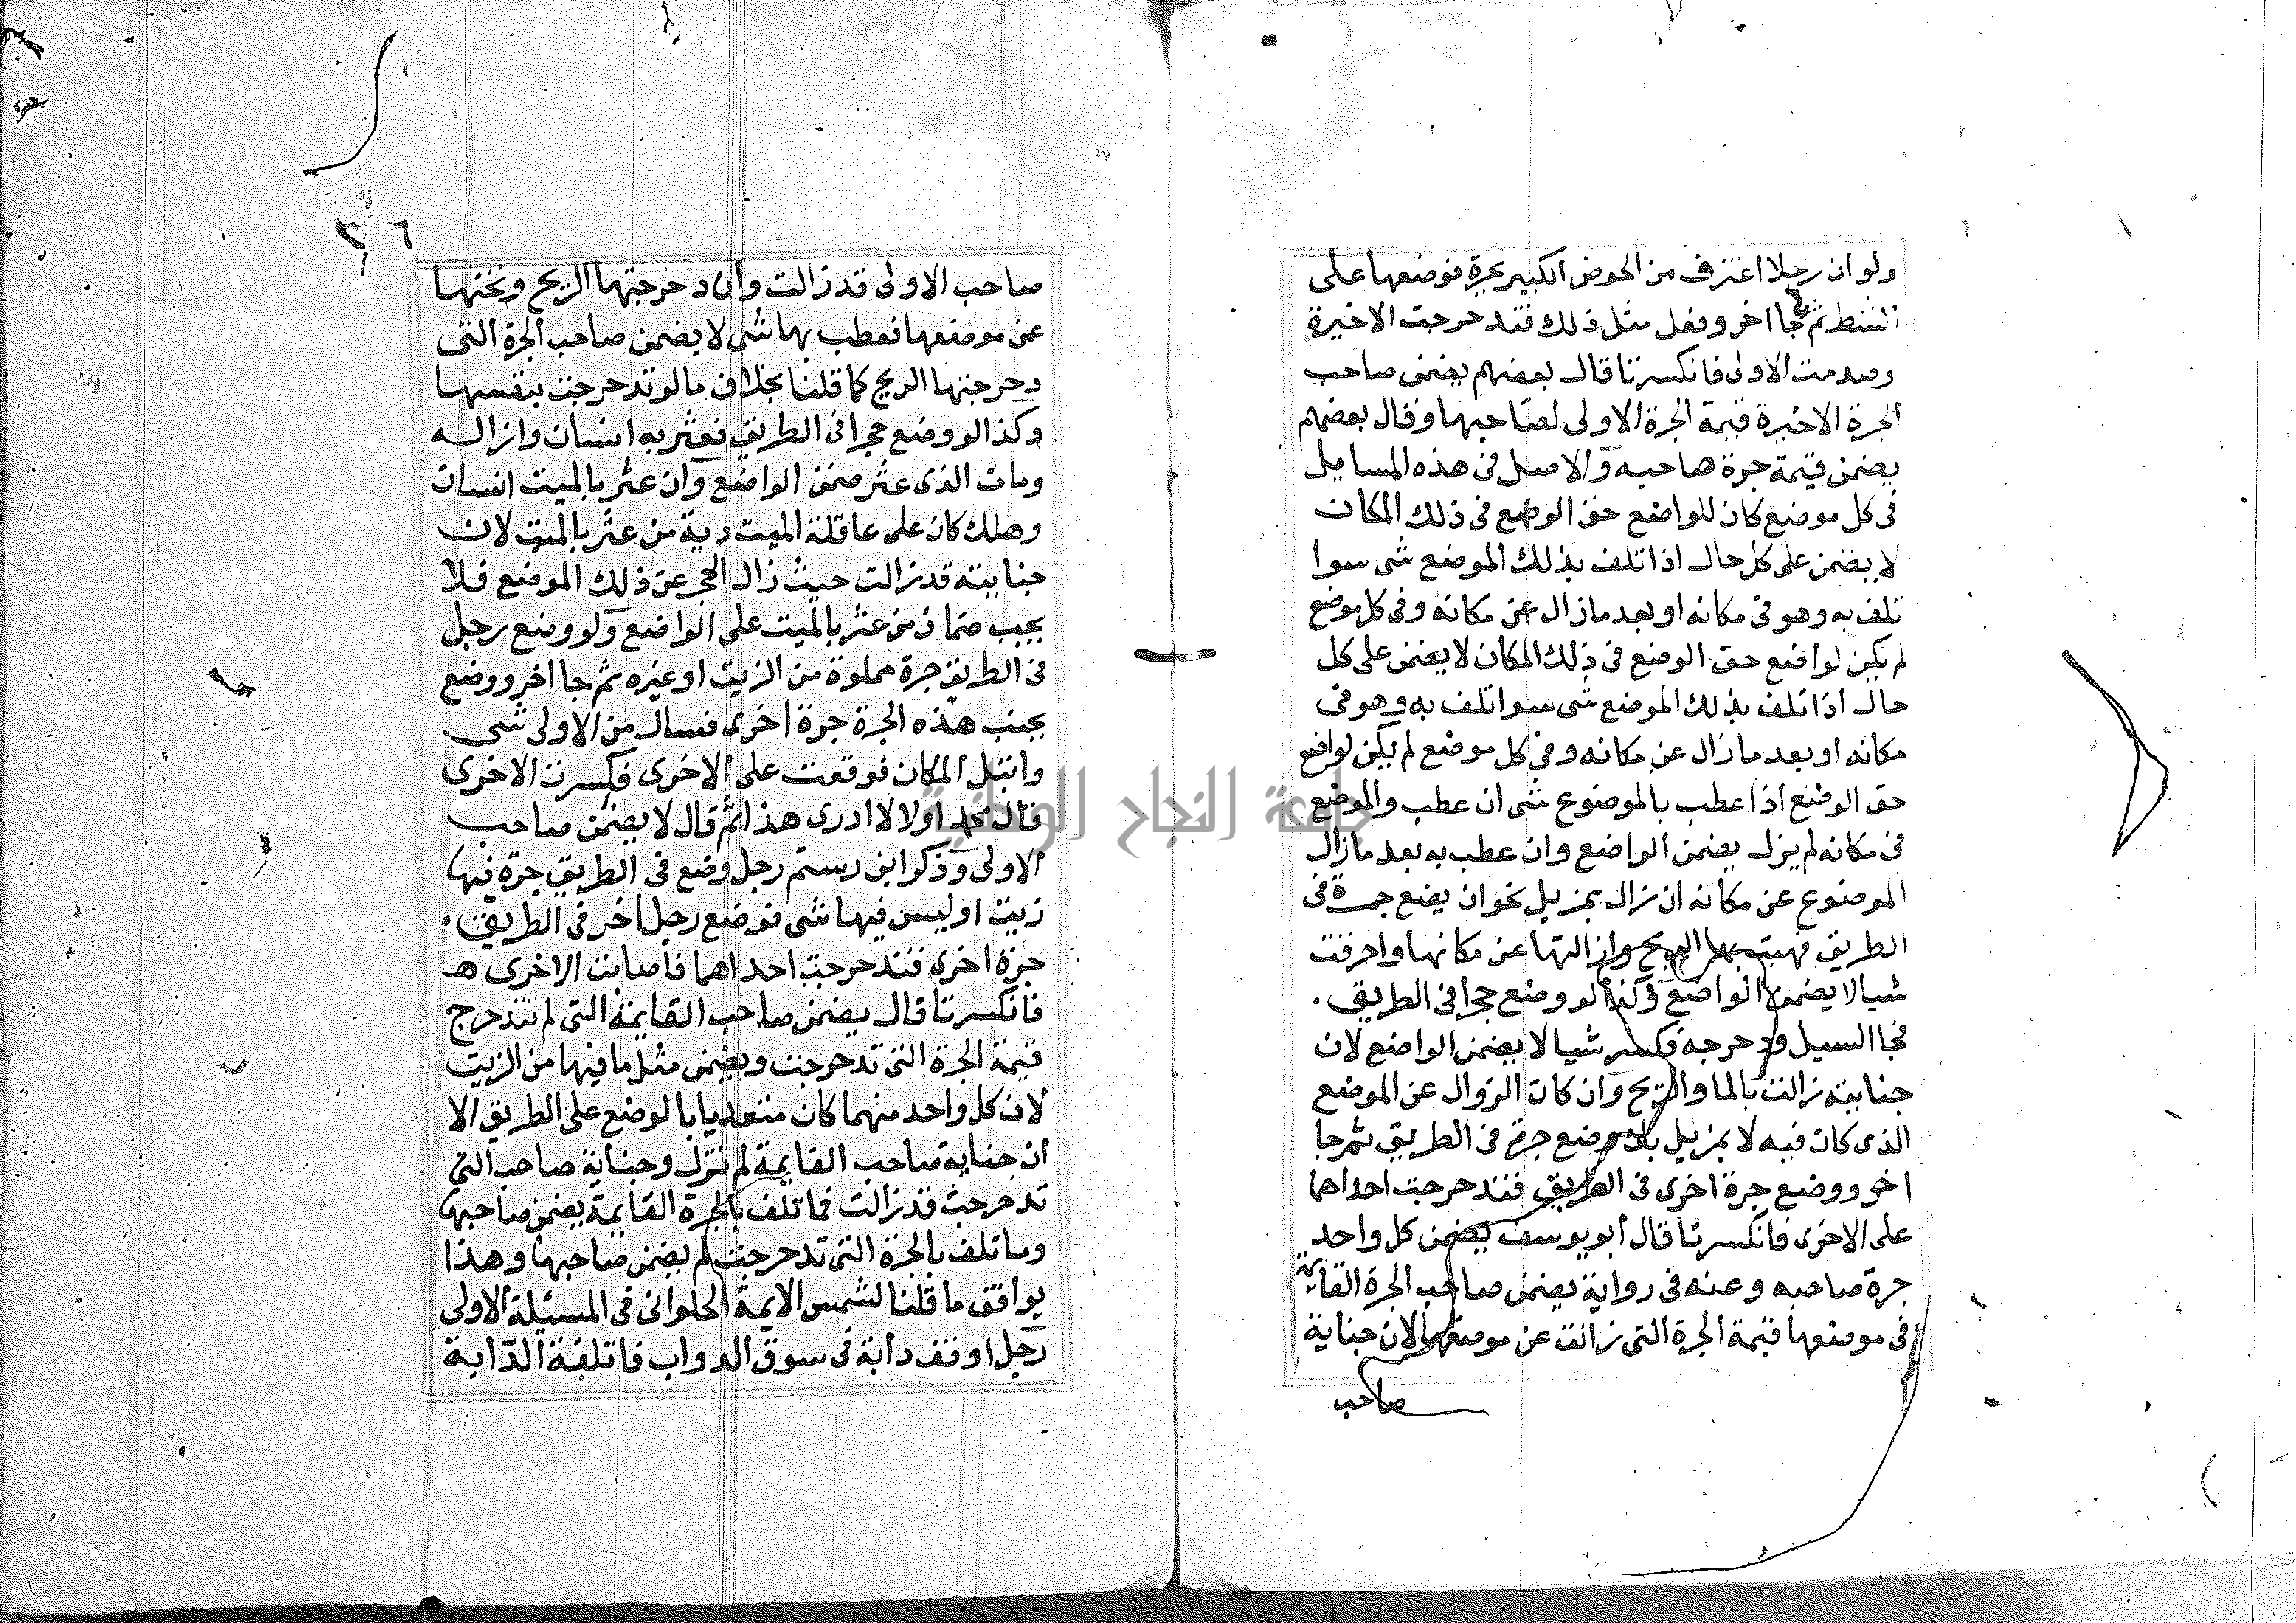 ولو ان رجلا اغترف من الحوض الكبير بجرة فوضعها على
الشط ثم جا اخر وفعل مثل ذلك فتدحرجت الاخيرة
وصدمت الاولى فانكسرتا قال بعضهم يضمن صاحب
الجرة الاخيرة قيمة الجرة الاولى لصاحبها وقال بعضهم
يضمن قيمة جرة صاحبه والاصل فى هذه المسايل
فى كل موضع كان للواضع حق الوضع فى ذلك المكان
لا يضمن على كل حال اذا تلف بذلك الموضع شى سوا
تلف به وهو فى مكانه او بعد ما زال عن مكانه وفى كل موضع
لم يكن لواضع حق الوضع فى ذلك المكان لا يضمن على كل
حال اذا تلف بذلك الموضع شى سوا تلف به وهو فى
مكانه او بعد ما زال عن مكانه وفى كل موضع لم يكن لواضع
حق الوضع اذا عطب بالموضوع شى ان عطب والموضع
فى مكانه لم يزل يضمن الواضع وان عطب به بعد ما زال
الموضوع عن مكانه ان زال بمزيل نحو ان يضع جمرة فى
الطريق فهبت بها الريح وازالتها عن مكانها واحرقت
شيا لا يضمن الواضع وكذا لو وضع حجرا فى الطريق .
فجا السيل ودحرجه فكسر شيا لا يضمن الواضع لان
جنايته زالت بالما والريح وان كان الزوال عن الموضع
الذى كان فيه لا بمزيل بان وضع جرة فى الطريق ثم جا
اخر ووضع جرة اخرى فى الطريق فتدحرجت احداهما
على الاخرى فانكسرتا قال ابو يوسف يضمن كل واحد
جرة صاحبه وعنه فى رواية يضمن صاحب الجرة القايمة
فى موضعها قيمة الجرة التى زالت عن موضعها لان جناية
صاحب
٣٦
صاحب الاولى قد زالت وان دحرجتها الريح ونحتها
عن موضعها فعطب بها شى لا يضمن صاحب الجرة التى
دحرجتها الريح كما قلنا بخلاف ما لو تدحرجت بنفسها
وكذا لو وضع حجرا فى الطريق فعثر به انسان وازاله
ومات الذى عثر ضمن الواضع وان عثر بالميت انسان
وهلك كان على عاقلة الميت دية من عثر بالميت لان
جنايته قد زالت حيث زال الحجر عن ذلك الموضع فلا
يجب ضمان من عثر بالميت على الواضع ولو وضع رجل
فى الطريق جرة مملوة من الزيت او غيره ثم جا اخر ووضع
بجنب هذه الجرة جرة اخرى فسال من الاولى شى
وابتل المكان فوقعت على الاخرى فكسرت الاخرى
قال محمد اولا لا ادرى هذا ثم قال لا يضمن صاحب
الاولى وذكر ابن رستم رجل وضع فى الطريق جرة فيها
زيت او ليس فيها شى فوضع رجل اخر فى الطريق .
جرة اخرى فتدحرجت احداهما فاصابت الاخرى هـ
فانكسرتا قال يضمن صاحب القايمة التى لم تتدحرج
قيمة الجرة التى تدحرجت ويضمن مثل ما فيها من الزيت
لان كل واحد منهما كان متعديا بالوضع على الطريق الا
ان جناية صاحب القايمة لم تزل وجناية صاحب التى
تدحرجت قد زالت فما تلف بالجرة القايمة يضمن صاحبها
وما تلف بالجرة التى تدحرجت لم يضمن صاحبها وهذا
يوافق ما قلنا لشمس الايمة الحلوانى فى المسئلة الاولى
رجل اوقف دابة فى سوق الدواب فاتلفة الدابة
جامعة النجاح الوطنية